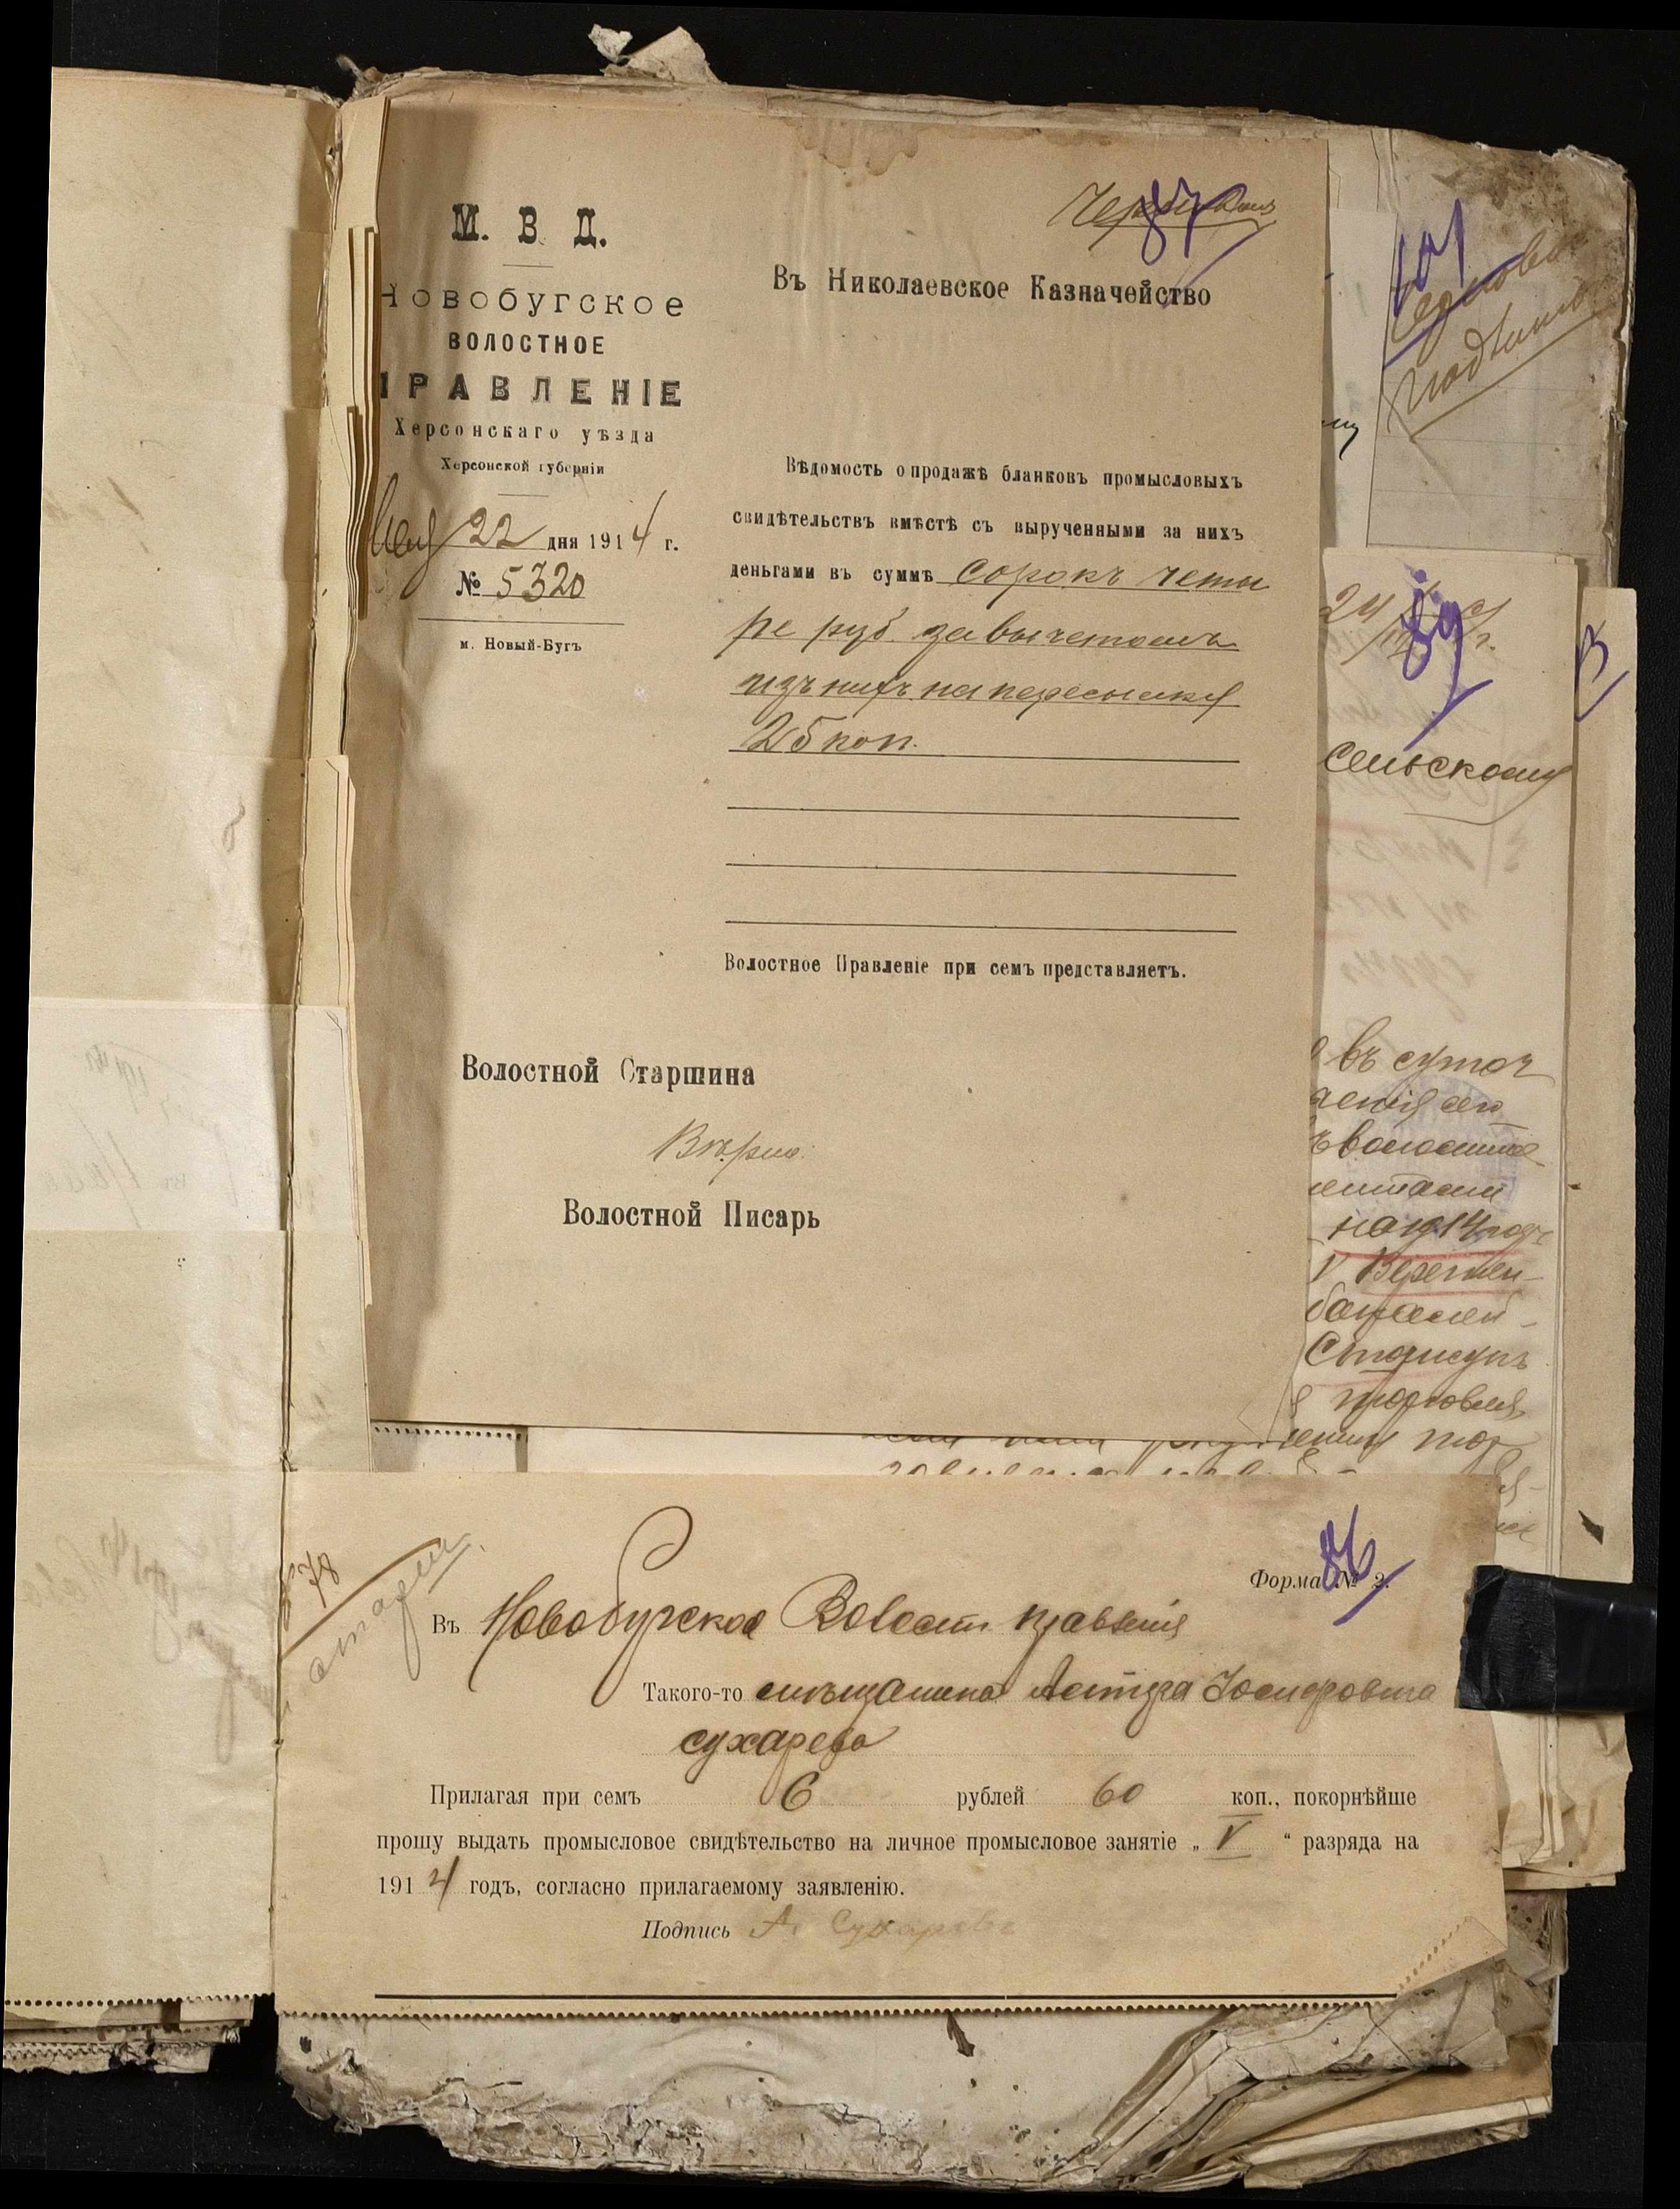 М. В. Д.
Новобугское
ВОЛОСТНОЕ
ПРАВЛЕНІЕ
Херсонскаго уѣзда
Херсонской губерніи
22 дня 1914 г.
№ 5320
м. Новый-Бугъ
87
Въ Николаевское Казначейство
Вѣдомость о продажѣ бланковъ промысловыхъ
свидѣтельствъ вмѣстѣ съ вырученными за нихъ
деньгами въ суммѣ сорокъ четы
ре руб. за вычетомъ
изъ нихъ на пересылку
25 коп.
Волостное Правленіе при семъ представляетъ.
Волостной Старшина
Волостной Писарь
101
89
сельскому
въ
на 1914 годъ
торговля
78
86
Форма № 2.
Въ Новобугское Волост. правленія
Такого-то мѣщанина Іосифовича
сухарева
Прилагая при семъ 6 рублей 60 коп., покорнѣйше
прошу выдать промысловое свидѣтельство на личное промысловое занятіе „ V “ разряда на
1914 годъ, согласно прилагаемому заявленію.
Подпись А. Сухаревъ